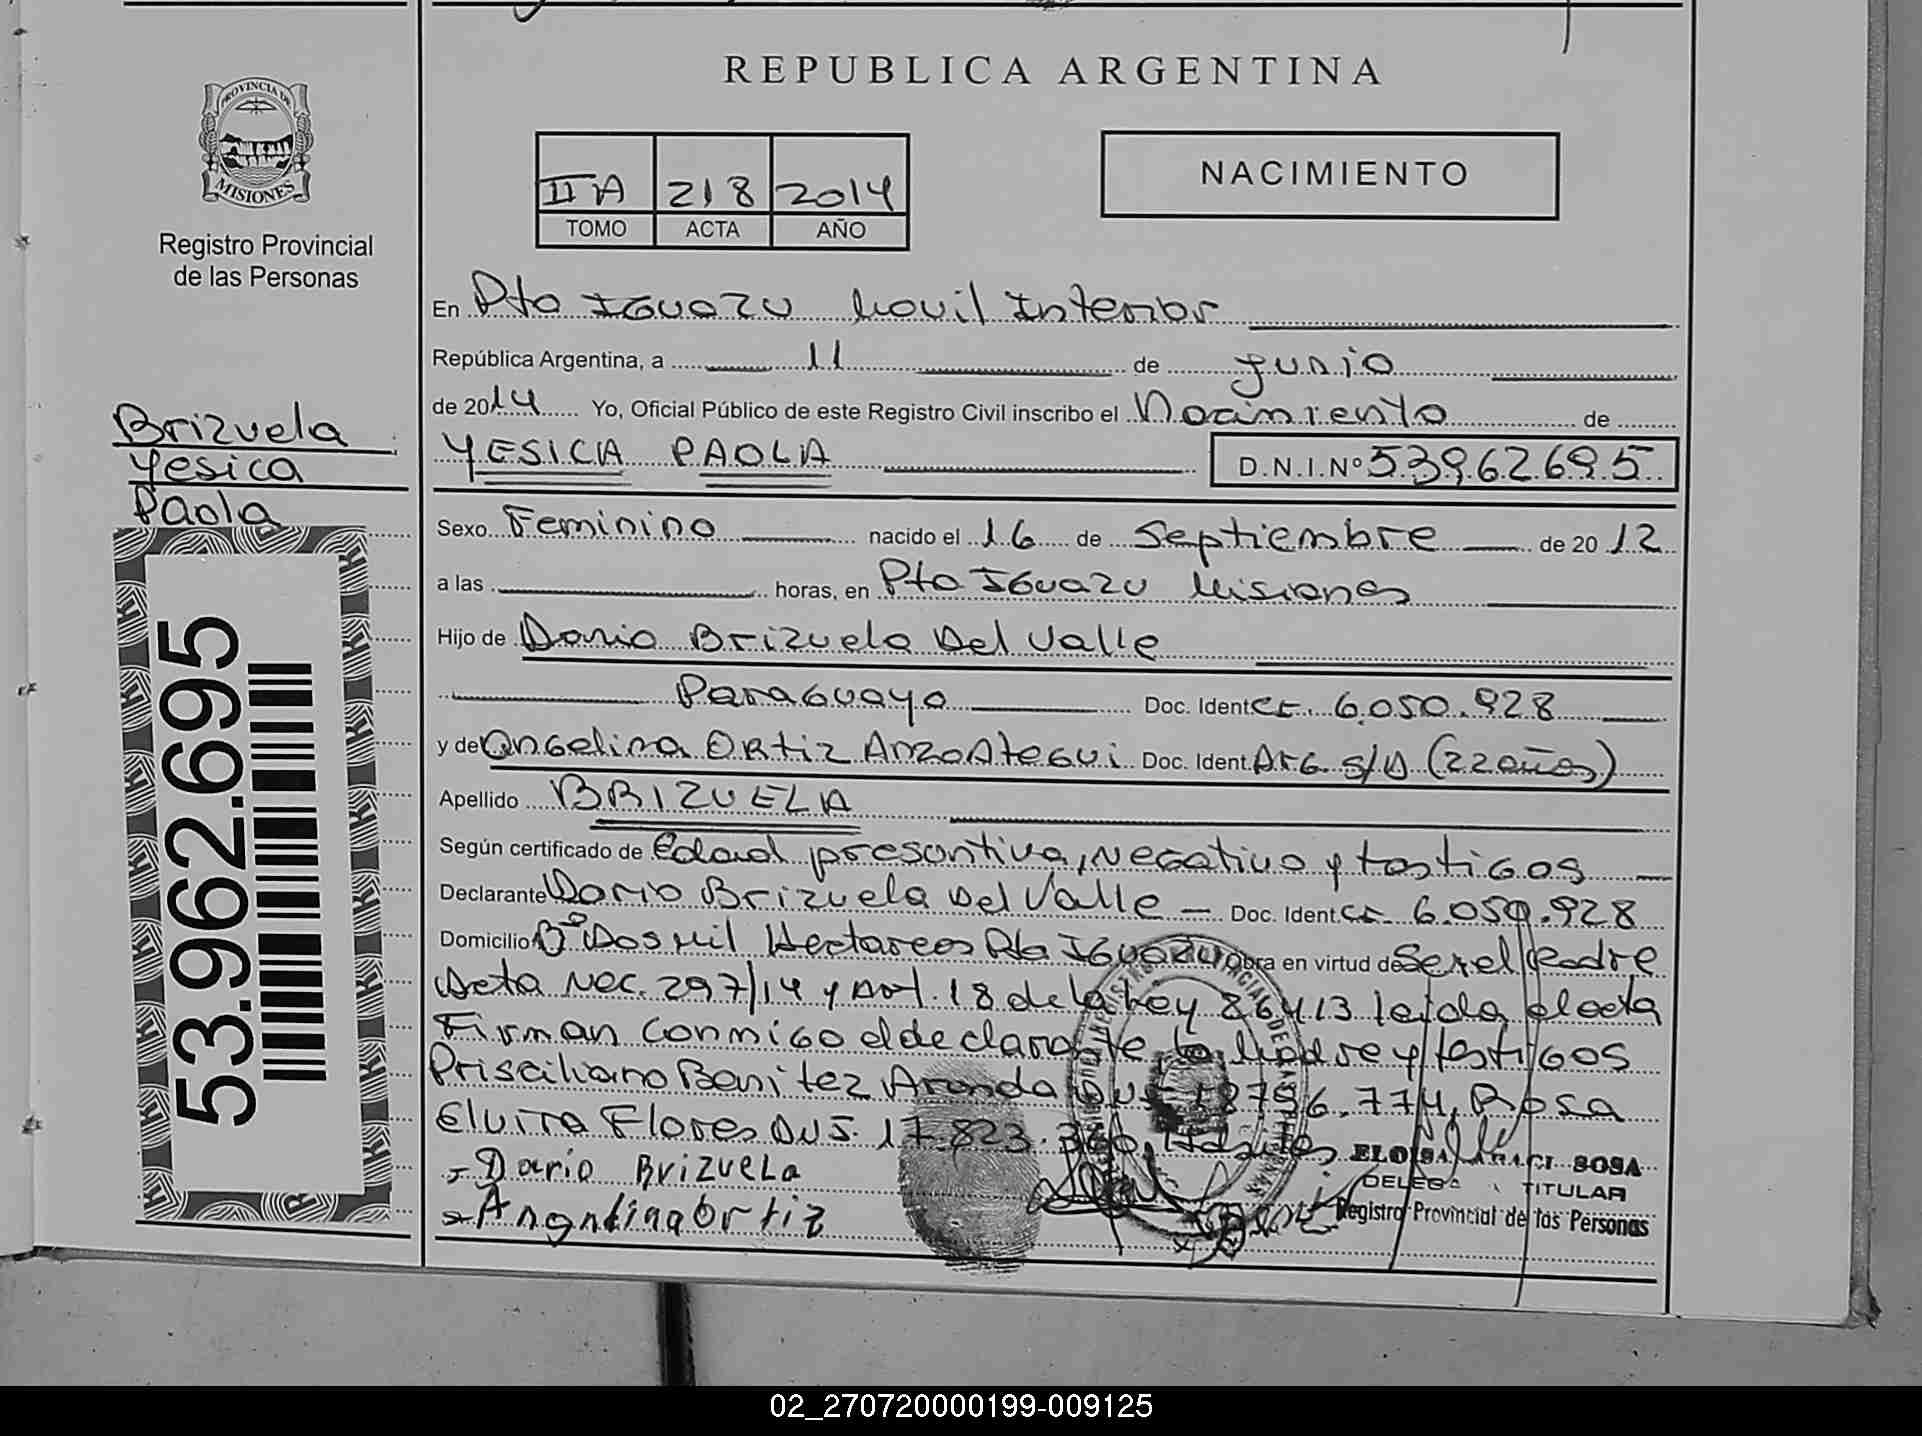 REPUBLICA ARGENTINA
PROVINCIA DE
MISIONES
Registro Provincial
de las Personas
IIA 218 2014
TOMO ACTA AÑO
NACIMIENTO
En Pto IGUAZU Movil Interior
República Argentina, a 11 de junio
de 2014 Yo, Oficial Público de este Registro Civil inscribo el Nacimiento de
YESICA PAOLA D.N.I.Nº 53962695
Brizuela
Yesica
Paola
53.962.695
Sexo Feminino nacido el 16 de Septiembre de 2012
a las horas, en Pto IGuazu Misiones
Hijo de Dario Brizuela Del Valle
Paraguayo Doc. Ident. CI. 6.050.928
y de Angelina Ortiz Anzoategui Doc. Ident. Arg. S/D (22 años)
Apellido BRIZUELA
Según certificado de Edad presuntiva, Negativo y testigos
Declarante Dario Brizuela Del Valle Doc. Ident. CI 6.050.928
Domicilio Bº Dos Mil Hectareas Pto IGuazu Obra en virtud de Ser el Padre
Acta Nec. 297/14 y Art. 18 de la Ley 26413 leida el acta
Firman conmigo el declarante la Madre y testigos
Prisciliano Benitez Aranda DNI 18756.774, Rosa
Elvira Flores DNI. 17.823.360,
Dario Brizuela
ELOISA ARACI SOSA
DELEGADA TITULAR
Registro Provincial de las Personas
02_270720000199-009125